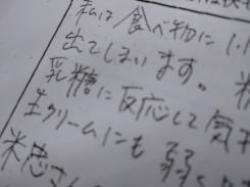 私は食べ物に
出てしまいます。
乳糖に反応して気
生クリームにも弱
米忠さん